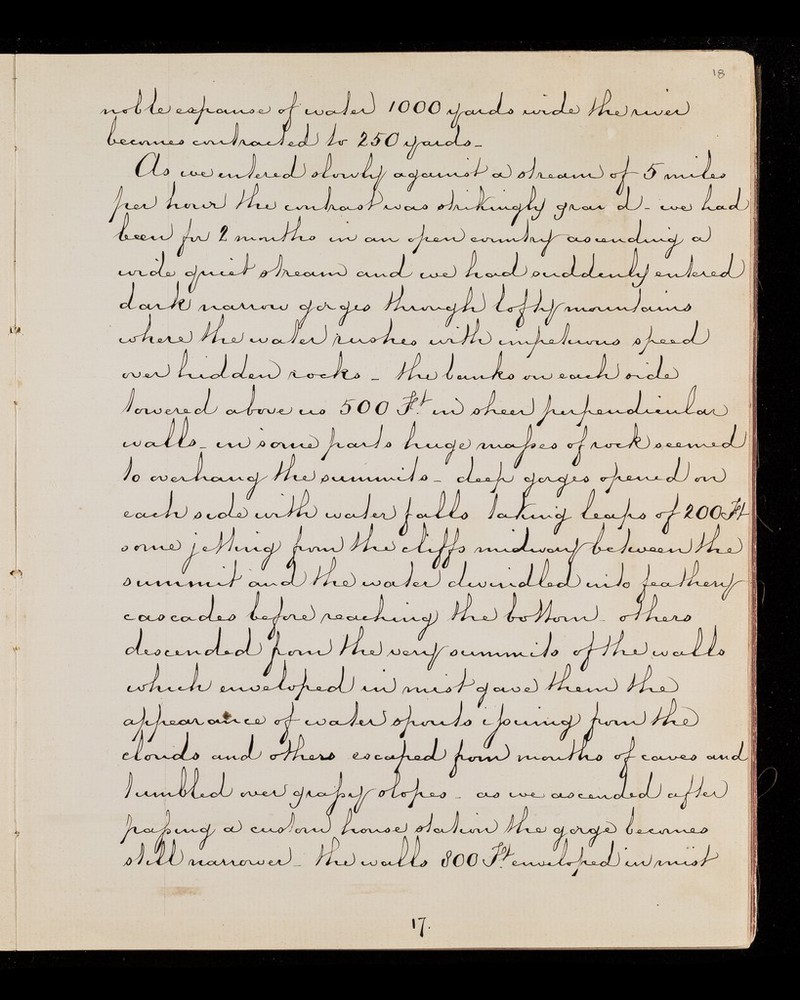 18
noble expanse of water 1000 yards wide the river
becomes contracted to 250 yards_
As we entered slowly against a stream of 5 miles
per hour the contrast was strikingly grand - we had
been for 2 months in an open country ascending a
wide quiet stream and we had suddenly entered
dark narrow gorges through lofty mountains
where the water rushes with impetuous speed
over hidden rocks - the banks on each side
towered above us 500 Ft. in sheer perpendicular
walls_ in some parts huge maſses of rock seemed
to overhang the summits_ deep gorges opened on
each side with water falls taking leaps of 200 Ft
some jetting from the cliffs midway between the
summit and the water dwindled into feathery
cascades before reaching the bottom_ others
descended from the very summits of the walls
which enveloped in mist gave them the
appearance of water spouts iſsuing from the
clouds and others escaped from mouths of caves and
tumbled over graſsy slopes_ as we ascended after
paſsing a custom house station the gorge becomes
still narrower_ the walls 800 Ft. enveloped in mist
17.